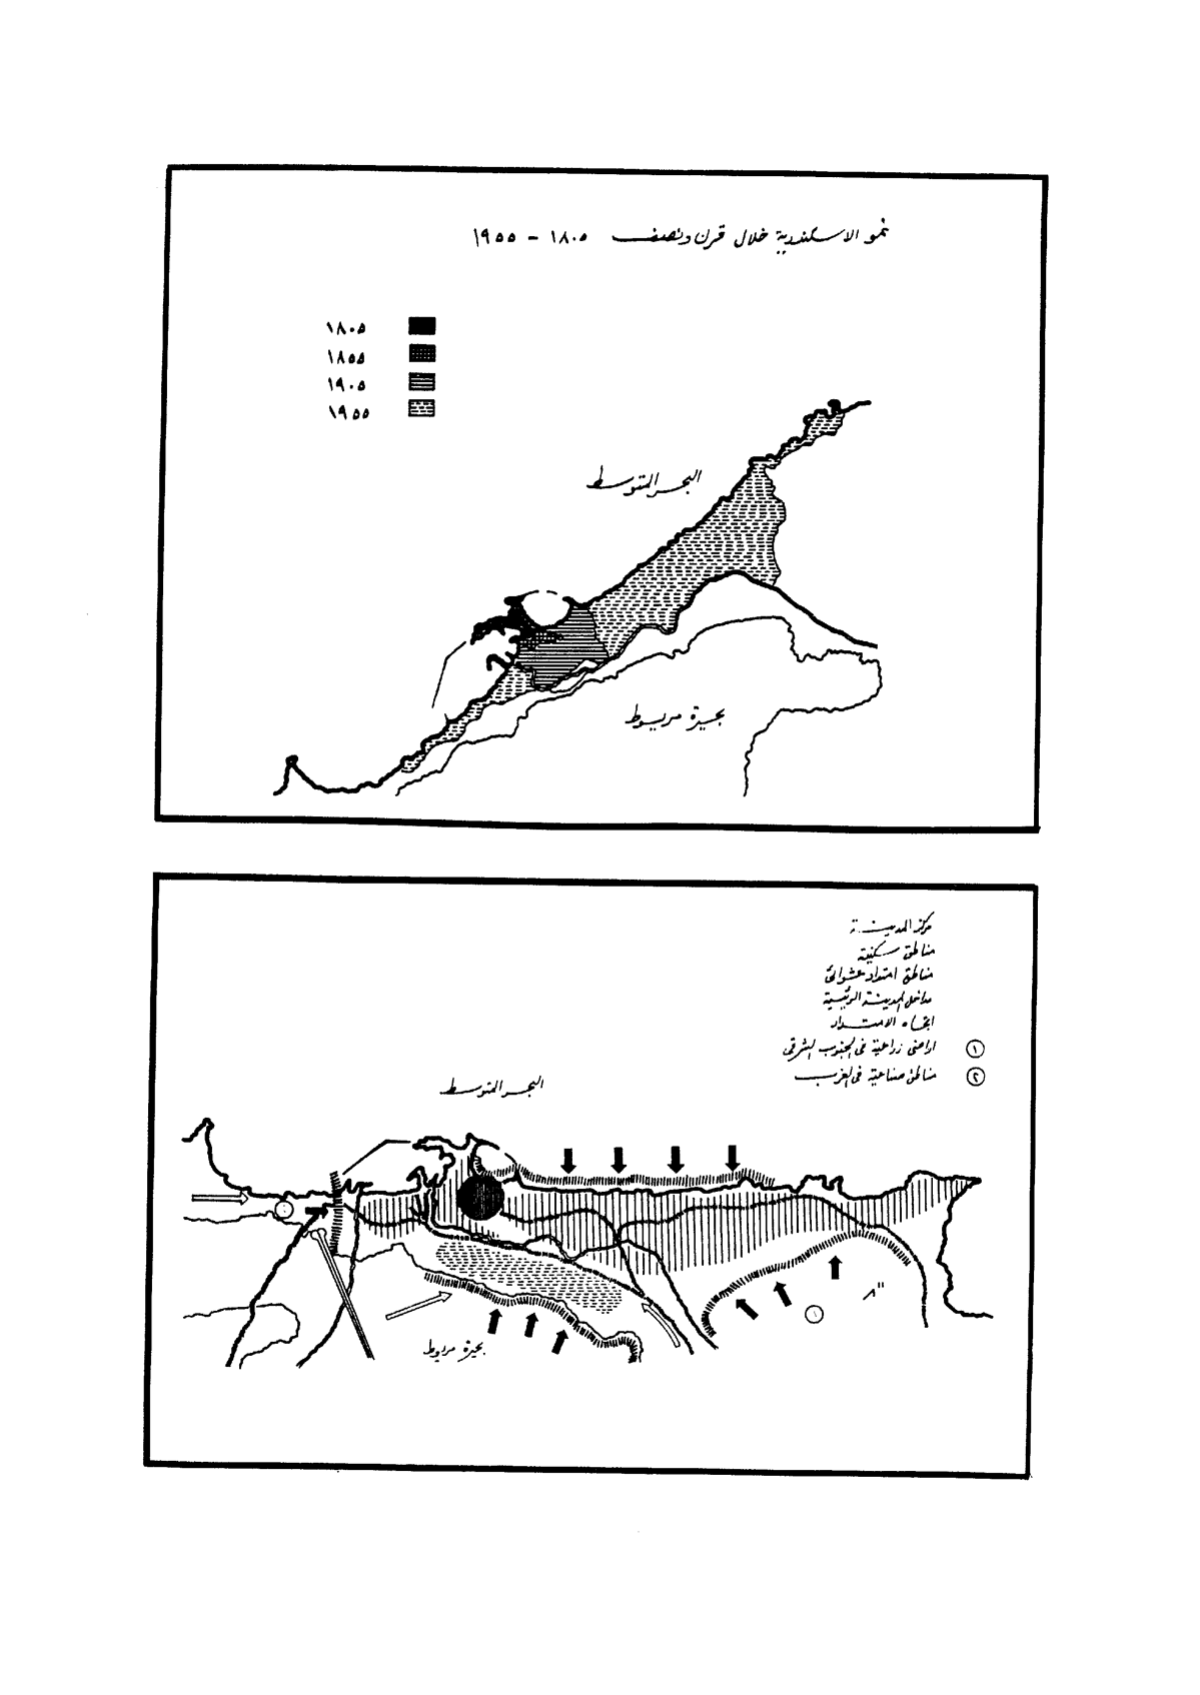 نمو الاسكندرية خلال قرن ونصف ١٨٠٥ - ١٩٥٥
١٨٠٥
١٨٥٥
١٩٠٥
١٩٥٥
البحر المتوسط
بحيرة مريوط
مركز المدينة
مناطق سكنية
مناطق امتداد عشوائى
مداخل المدينة الرئيسية
اتجاه الامتداد
١ اراضى زراعية فى الجنوب الشرقى
٢ مناطق صناعية فى الغرب
البحر المتوسط
بحيرة مريوط